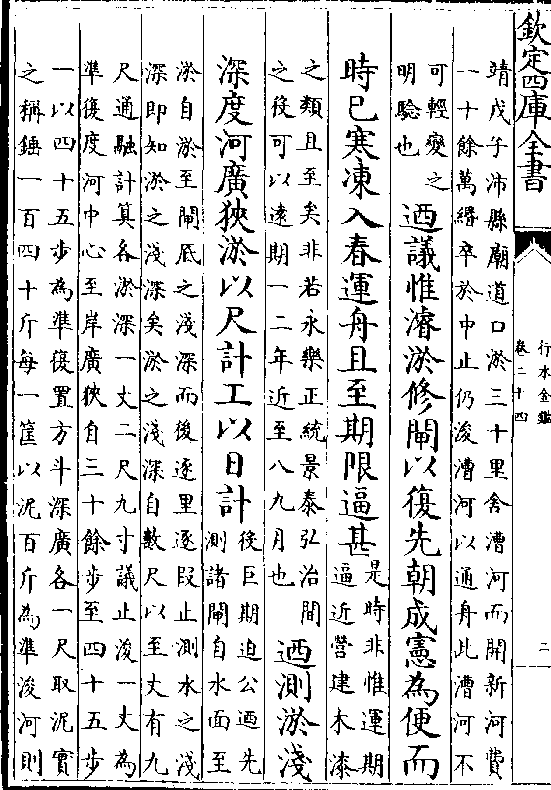 欽定四庫全書
行水金鑑
卷二十四
二
靖戊子沛縣廟道口淤三十里舍漕河而開新河費
一十餘萬緡卒於中止仍浚漕河以通舟此漕河不
可輕變之
明驗也
迺議惟濬淤修閘以復先朝成憲為便而
時已寒凍入春運舟且至期限逼甚
是時非惟運期
逼近營建木漆
之類且至矣非若永樂正統景泰弘治間
之役可以遠期一二年近至八九月也
迺測淤淺
深度河廣狹淤以尺計工以日計
役巨期迫公迺先
測諸閘自水面至
淤自淤至閘底之淺深而後逐里逐段止測水之淺
深即知淤之淺深矣淤之淺深自數尺以至丈有九
尺通融計算各淤深一丈二尺九寸議止浚一丈為
準復度河中心至岸廣狹自三十餘步至四十五步
一以四十五步為準復置方斗深廣各一尺取泥實
之稱錘一百四十斤每一筐以泥百斤為準浚河則